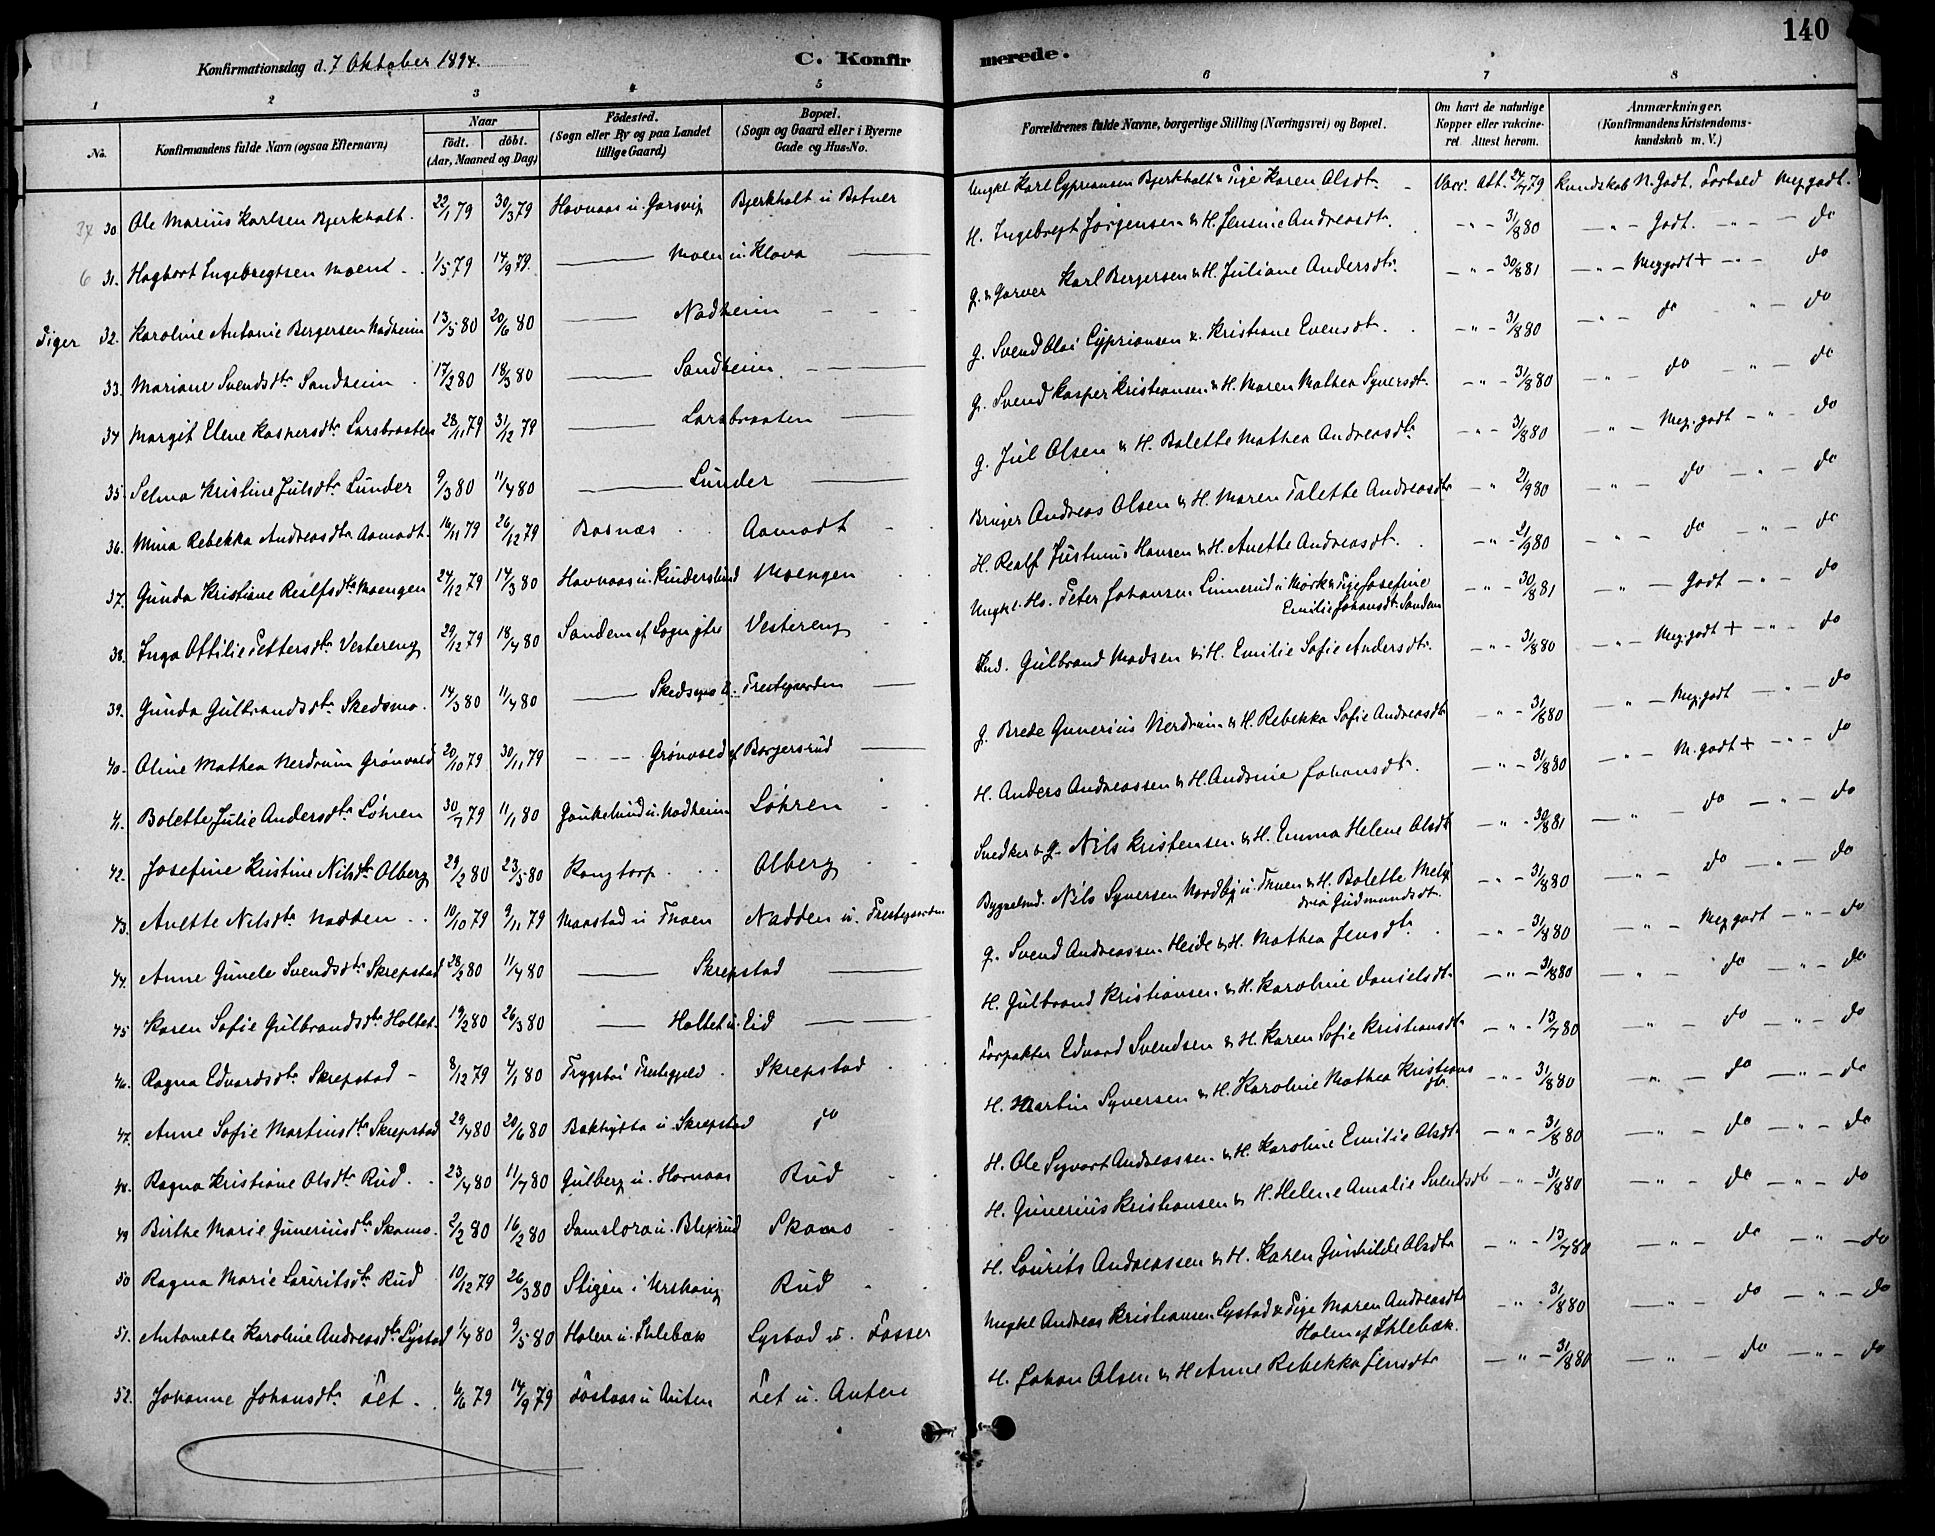 140
Konfirmationsdag d. 7 Oktober 1894.
C. Konfirmerede.
1 2 3 4 5 6 7 8
No.
Konfirmandens fulde Navn (ogsaa Efternavn)
Naar
født. døbt.
(Aar, Maaned og Dag)
Födested.
(Sogn eller By og paa Landet
tillige Gaard)
Bopæl.
(Sogn og Gaard eller i Byerne
Gade og Hus-No.
Forældrenes fulde Navne, borgerlige Stilling (Næringsvei) og Bopæl.
Om havt de naturlige
Kopper eller vakcineret
Attest herom.
Anmærkninger.
(Konfirmandens Kristendomskundskab
m. V.)
30 Ole Marius Karlsen Bjerkholt. 22/1 79 30/3 79 Hovnaas u. Garsvig Bjerkholt u Botner Ungkl Karl Cypriansen Bjerkholt & Pige Karen Olsdtr. Vacc. Att. 24/7 79 Kundskab N. Godt. Forhold Meg. godt.
6 31. Hagbart Ingebregtsen Moene 1/5 79 14/9 79 — Moen u. Klova — H. Ingebregt Jørgensen & H. Jensine Andreasdtr. — " — 31/8 80 — " — Godt. — " — do
Piger 32. Karoline Antonie Bergersen Nadheim 13/5 80 20/6 80 — Nadheim — G. & Garver Karl Bergersen & H. Juliane Andersdtr. — " — 30/8 81 — " — Meg godt + — " — do
33. Mariane Svendsdtr Sandheim 17/2 80 18/3 80 — Sandheim — G. Svend Olai Cypriansen & Kristiane Evensdtr. — " — 31/8 80 — " — do " — do
34 Margit Elene Kaspersdtr Larsbraaten 28/11 79 31/12 79 — Larsbraaten — G. Svend Kasper Kristiansen & H. Maren Mathea Syversdtr. — " — 31/8 80 — " — do — " — do
35. Selma Kristine Julsdtr Lunder 9/3 80 11/4 80 — Lunder — G. Jul Olsen & H. Bolette Mathea Andreasdtr — " — 31/8 80 — " — Meg. godt — " — do
36. Mina Rebekka Andreasdtr Aamodt. 16/11 79 26/12 79 Bosnæs Aamodt Bruger Andreas Olsen & H. Maren Talette Andreasdtr — " — 21/9 80 — " — do — " — do
37. Gunda Kristiane Realfsdtr Moengen 24/12 79 14/3 80 Hovnaas u. Kinderslund Moengen H. Realf Justnius Hansen & H. Anette Andreasdtr. — " — 21/9 80 — " — do — " — do
38. Inga Ottilie Pettersdtr Vestereng 29/12 79 18/4 80 Sandem af Sogn gtre Vestereng Ungkl. Hs. Peter Johansen Linnerud u Mork & Pige Josefine
Emilie Johansdtr. Sandem — " — 30/8 81 — " — Godt — " — do
39. Gunda Gulbrandsdtr Skedsmo. 14/3 80 11/4 80 — Skedsmo u. Prestegaarden — Ind. Gulbrand Madsen & H. Emilie Sofie Andersdtr. — " — 31/8 80 — " — Meg. godt + — " — do
40. Oline Mathea Nerdrum Grønvold 20/10 79 30/11 79 — Grønvold af Borgersrud — G. Brede Gunerius Nerdrum & H. Rebekka Sofie Andreasdtr — " — 31/8 80 — " — Meg. godt — " — do
41. Bolette Julie Andersdtr. Løhren 30/7 79 11/1 80 Gaukelund u. Nadheim Løhren H. Anders Andreassen & H. Andrine Johansdtr. — " — 31/8 80 — " — M. godt + — " — do
42. Josefine Kristine Nilsdtr Olberg 29/2 80 23/5 80 Rongtorp Olberg Snedker & G. Nils Kristensen & H. Emma Helene Olsdtr — " — 30/8 81 — " — do — " — do
43. Anette Nilsdtr Nadden 10/10 79 9/11 79 Maastad u Thoen Nadden u. Prestegaarden Bygselmd. Nils Syversen Nordby u. Thoen & H. Bolette
Gudmundsdtr. — " — 31/8 80 — " — do — " — do
44. Anne Gunele Svendsdtr Skrepstad 28/2 80 11/4 80 — Skrepstad — G. Svend Andreassen Heide & H. Mathea Jensdtr — " — 31/8 80 — " — Meg. godt — " — do
45 Karen Sofie Gulbrandsdtr Holtet. 19/2 80 26/3 80 — Holtet u. Eid — H. Gulbrand Kristiansen & H. Karoline Danielsdtr. — " — 31/8 80 — " — do — " — do
46. Ragna Edvardsdtr Skrepstad 8/12 79 4/1 80 Trygstad Prestegjeld Skrepstad Forpakter Edvard Svendsen & H. Karen Sofie Kristiansdtr — " — 13/7 80 — " — do — " — do
47. Anne Sofie Martinsdtr Skrepstad 29/4 80 20/6 80 Bakhytta u. Skrepstad do H. Martin Syversen & H. Karoline Mathea Kristians
dtr. — " — 31/8 80 — " — do — " — do
48. Ragna Kristiane Olsdtr Rud. 23/4 80 11/7 80 Gulberg u. Hovnaas Rud H. Ole Syvert Andreassen & H. Karoline Emilie Olsdtr — " — 31/8 80 — " — do — " — do
49 Birthe Marie Guneriusdtr Skamo. 2/2 80 16/2 80 Damslora u. Blixrud Skamo H. Gunerius Kristiansen & H. Helene Amalie Svendsdtr — " — 31/8 80 — " — do — " — do
50 Ragna Marie Lauritsdtr Rud 10/12 79 26/3 80 Stigen i Urskoug Rud H. Laurits Andreassen & H. Karen Gunhilde Olsdtr — " — 13/7 80 — " — do — " — do
51. Antonette Karoline Andreasdtr Lystad 1/4 80 9/5 80 Holen u. Ihlebæk Lystad u. Fosser Ungkl Andreas Kristiansen Lystad & Pige Maren Andreasdtr
Holen af Ihlebæk. — " — 31/8 80 — " — do — " — do
52. Johanne Johansdtr Fet 6/6 79 14/9 79 Fostaas u Auten Fet u. Auten H. Johan Olsen & H Anne Rebekka Jensdtr — " — 31/8 80 — " — do — " — do